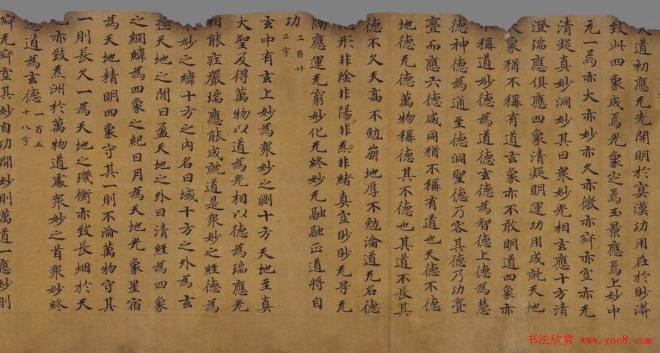 道初應无先開明於寘漠功用在於眇漭
致此四象成焉光象定焉玉景應焉上妙中
元一焉亦大亦妙亦久亦微亦辯亦宣亦元
清凝真妙洞妙其曰衆妙光相玄應十方清
澄瑞應俱應四象清凝明運功用成就天地
象猶不稱有道玄象亦不敢明道四象亦
不稱道妙德玄德為智德上德為慧
德神德為通至德洞聖德乃容其德乃功
而應六德咸同猶不稱有道也天德不德
地德无德萬物稱德其不德也其道不長其
德不久天高不勉崩地厚不勉淪道无名德
形非陰非陽非炁非緒真空眇眇无尋无
應運无窮妙化无終妙无融融正道將自
功 二百卅二字
玄中有玄上妙為衆妙之淵十方天地至真
大聖及得萬物以道為光相以德為瑞應光
相能症嚴瑞應能成就道是衆妙之經德為
妙之緯十方之內名曰域十方之外為玄
極天地之間曰盈天地之外曰清經為四象
之綱緯為四象之紀日月為天地光象星宿
為天地精明四象守其一則不淪萬物守其
一則長久一為天地之璣衡亦致長烟於天
亦致系洲於萬物道處衆妙之首衆妙終
道為玄德 一百五十八字
辯无辯宣其妙自功開妙則萬道一應妙則
书法欣赏 www.yac8.com